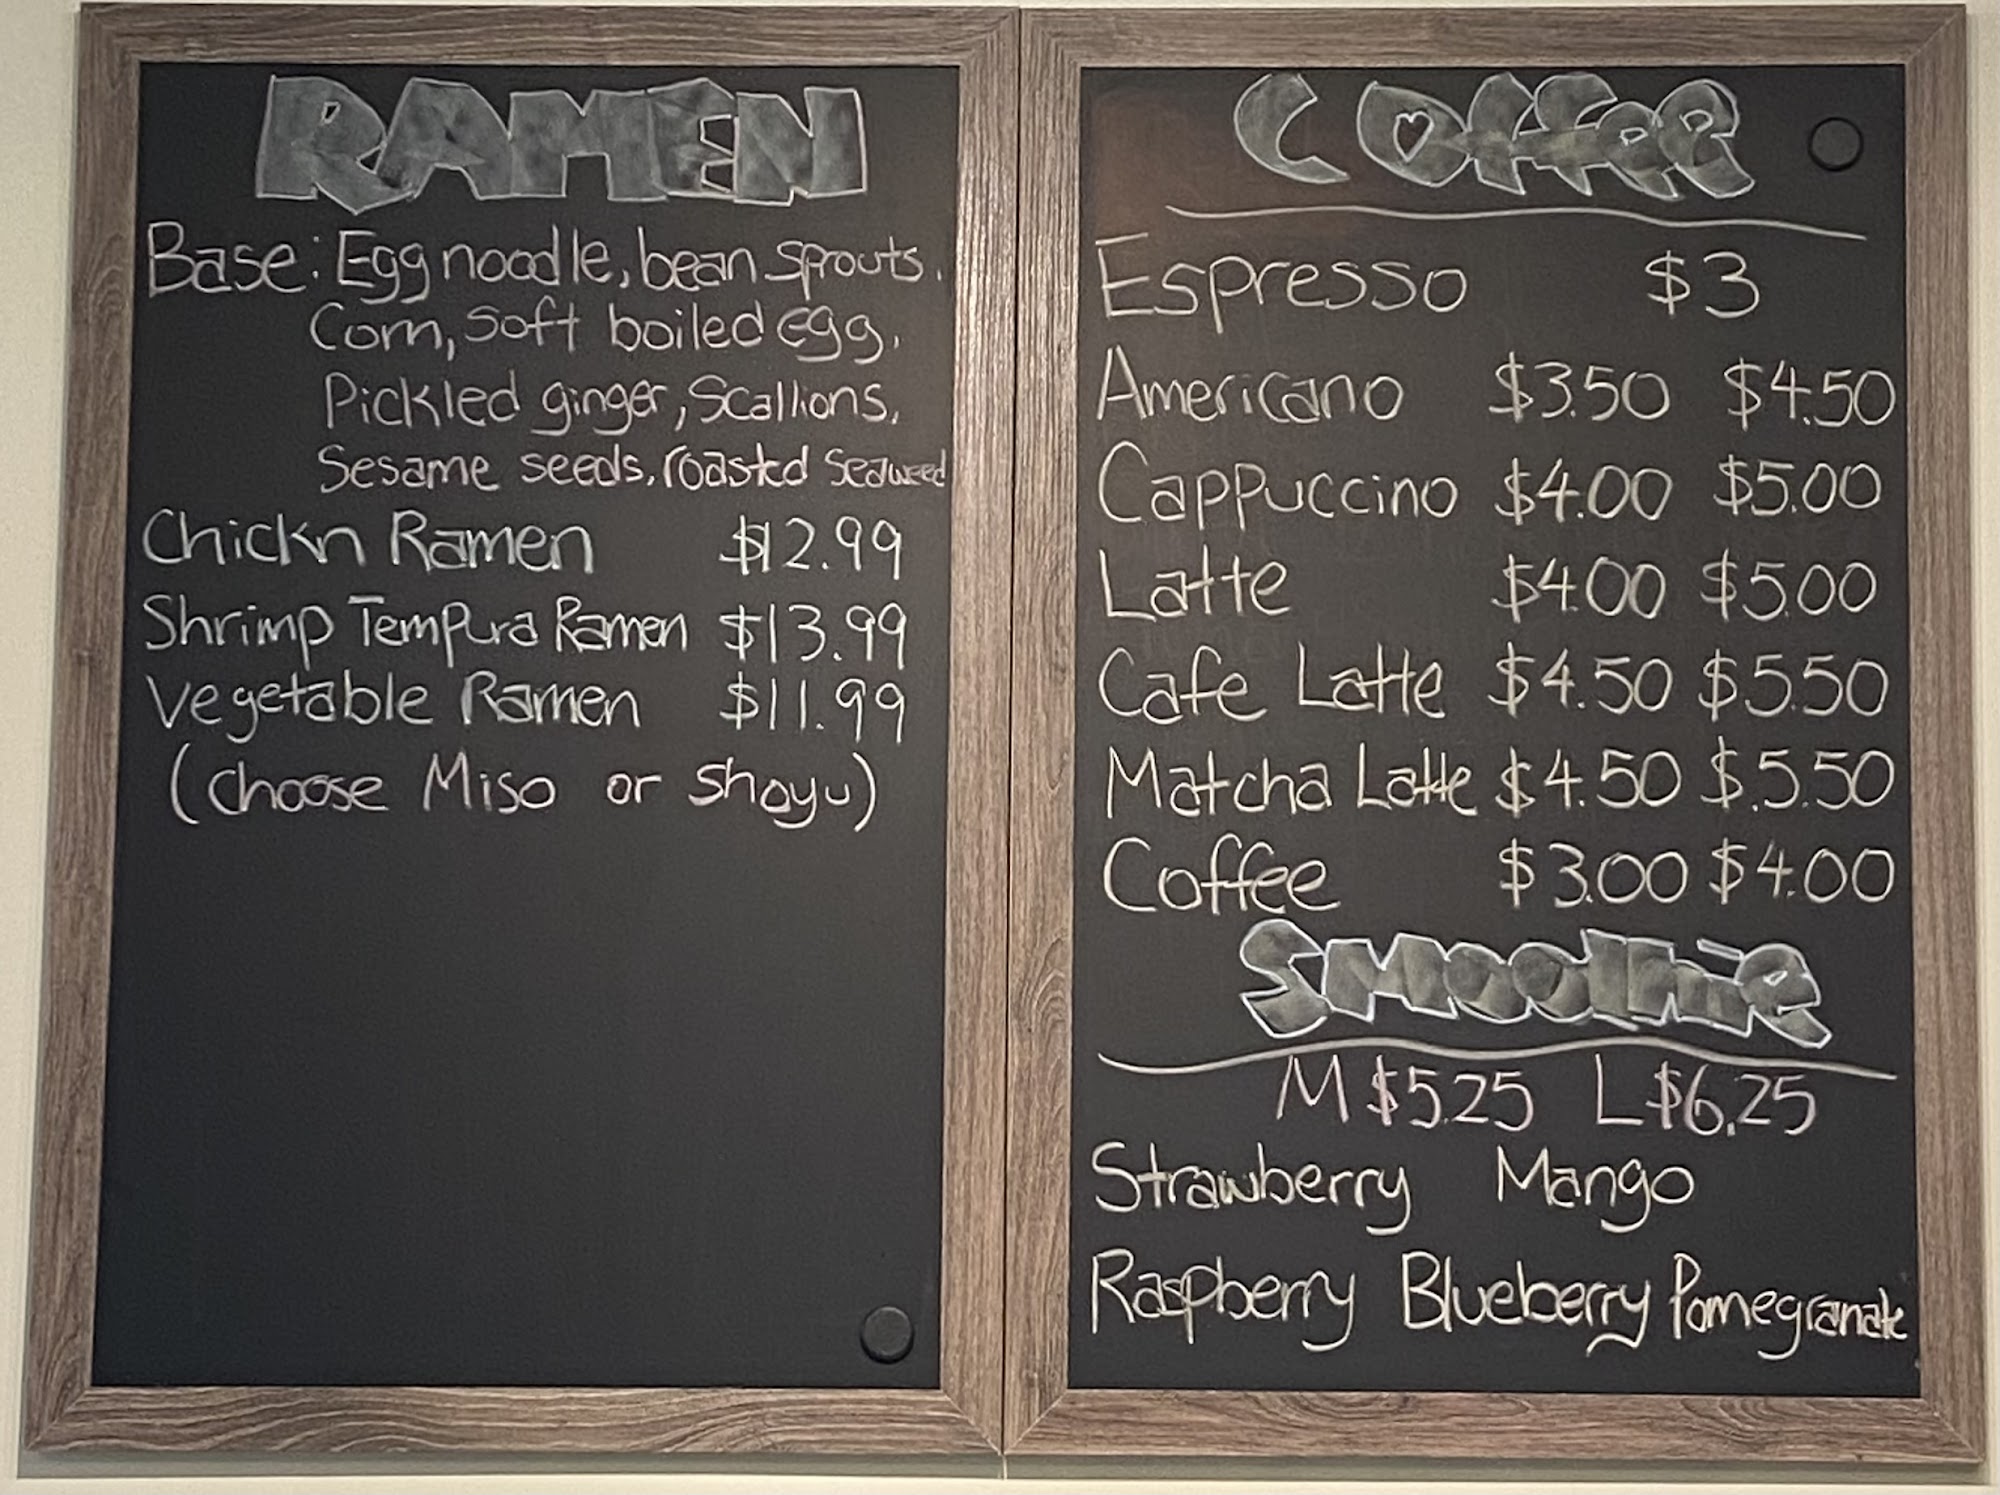 RAMEN
Base: Egg noodle, bean sprouts.
Corn, soft boiled egg.
Pickled ginger, scallions.
Sesame seeds, roasted seaweed
Chickn Ramen $12.99
Shrimp Tempura Ramen $13.99
Vegetable Ramen $11.99
(choose Miso or shoyu)
Coffee
Espresso $3
Americano $3.50 $4.50
Cappuccino $4.00 $5.00
Latte $4.00 $5.00
Cafe Latte $4.50 $5.50
Matcha Latte $4.50 $5.50
Coffee $3.00 $4.00
Smoothie
M $5.25 L $6.25
Strawberry Mango
Raspberry Blueberry Pomegranate